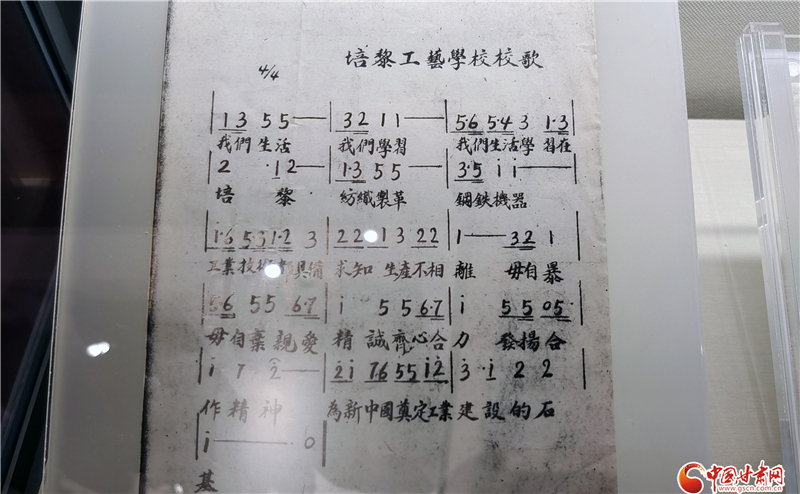 培黎工藝學校校歌
4/4
1 3 5 5 — | 3 2 1 1 — | 5·6 5·4 3 1·3
我們生活 我們學習 我們生活學習在
2 1 2 — | 1·3 5 5 — | 3·5 i i —
培黎 紡織製革 鋼鉄機器
i·6 5 3 1·2 3 | 2 2 1 3 2 2 | 1 — 3 2 1
工業技術都具備 求知生產不相離 毋自暴
5 6 5 5 6·7 | i 5 5 6·7 | i 5 5 0 5
毋自棄親愛 精誠齊心合力 發揚合
i 7 2 — | 2 i 7 6 5 5 i 2 | 3 · i 2 2
作精神 為新中國奠定工業建設的石
i — 0
基
中国甘肃网
www.gscn.com.cn